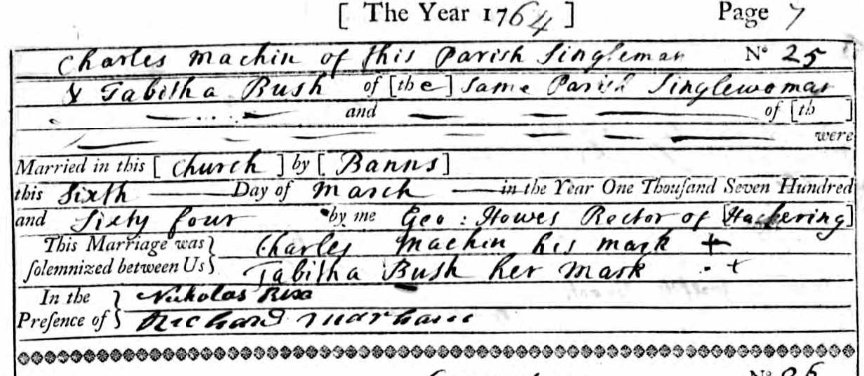 [ The Year 1764 ] Page 7
Charles Machin of this Parish Singleman No 25
& Tabitha Bush of [the] Same Parish Singlewoman
and of [th ]
were
Married in this [ Church ] by [ Banns ]
this Sixth Day of March in the Year One Thouſand Seven Hundred
and Sixty four by me Geo: Howes Rector of [ ]
This Marriage was
ſolemnized between Us
Charles Machin his mark +
Tabitha Bush her Mark +
In the
Preſence of
Nicholas
Richard
No 26